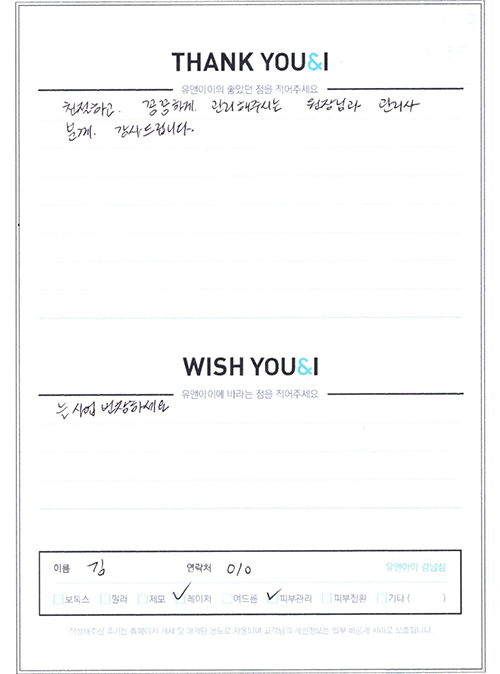 THANK YOU&I
유앤아이의 좋았던 점을 적어주세요
친절하고. 꼼꼼하게. 관리해주시는 원장님과 관리사
분께. 감사드립니다.
WISH YOU&I
유앤아이에 바라는 점을 적어주세요
사업 번창하세요
이름 김 연락처 010 유앤아이 강남점
보톡스 필러 제모 레이저 여드름 피부관리 피부질환 기타 ( )
작성해주신 후기는 홈페이지 게재 및 마케팅 용도로 사용되며 고객님의 개인정보는 일부 비공개 처리로 보호됩니다.